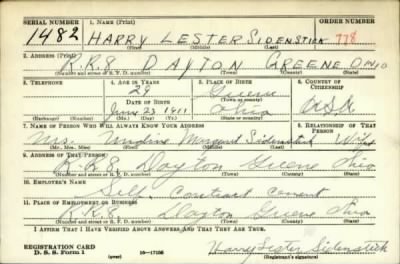 SERIAL NUMBER 1. NAME (Print) ORDER NUMBER
1482 HARRY LESTER SIDENSTICK 778
(First) (Middle) (Last)
2. ADDRESS (Print)
R.R.8 DAYTON GREENE OHIO
(Number and street or R. F. D. number) (Town) (County) (State)
3. TELEPHONE 4. AGE IN YEARS 5. PLACE OF BIRTH 6. COUNTRY OF CITIZENSHIP
29 Greene
DATE OF BIRTH (Town or county)
June 23 1911 Ohio USA
(Exchange) (No.) (Mo.) (Day) (Yr.) (State or country)
7. NAME OF PERSON WHO WILL ALWAYS KNOW YOUR ADDRESS 8. RELATIONSHIP OF THAT PERSON
Mrs. Margaret Sidenstick Wife
(Mr., Mrs., Miss) (First) (Middle) (Last)
9. ADDRESS OF THAT PERSON
R.R.8 Dayton Greene Ohio
(Number and street or R. F. D. number) (Town) (County) (State)
10. EMPLOYER'S NAME
Self. Contract Cement
11. PLACE OF EMPLOYMENT OR BUSINESS
R.R.8 Dayton Greene Ohio
(Number and street or R. F. D. number) (Town) (County) (State)
I AFFIRM THAT I HAVE VERIFIED ABOVE ANSWERS AND THAT THEY ARE TRUE.
REGISTRATION CARD
D. S. S. Form 1 (over) Harry Lester Sidenstick
(Registrant's signature)